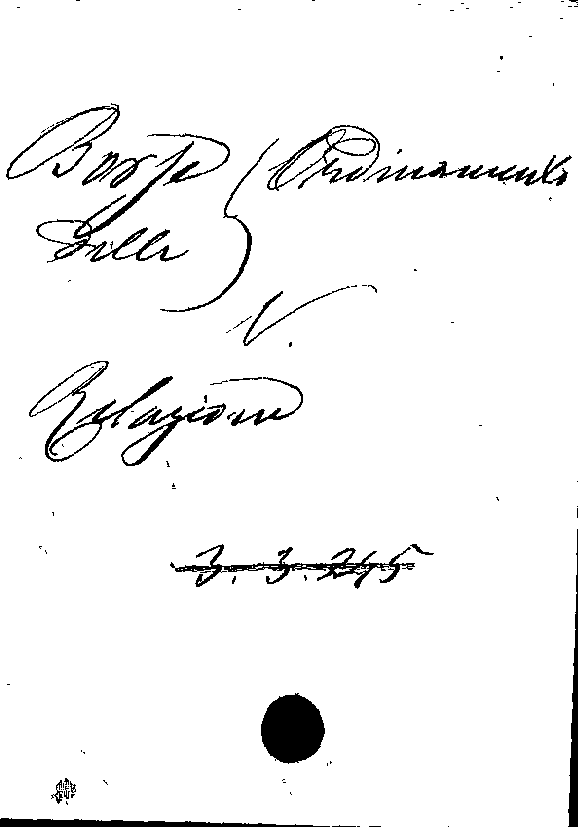 Borse (Ordinamento
delle)
V.
Relazione
3. 3. 245